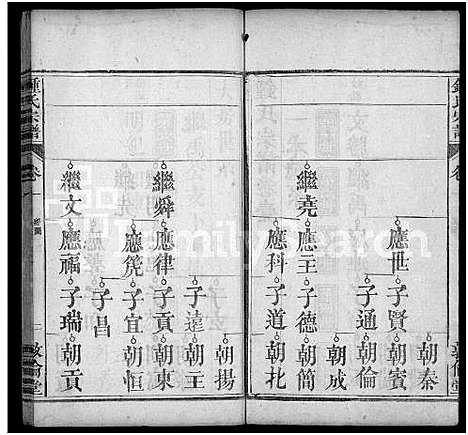 鍾氏宗譜
卷一
敦倫堂
朝秦
應世
子賢
朝賓
子通
朝倫
朝成
繼堯
應主
子德
朝簡
應科
子道
朝北
朝揚
子達
朝王
繼舜
應律
子貢
朝東
應堯
子宜
朝恒
子昌
繼文
應福
子瑞
朝貢
鍾氏宗譜
卷一
敦倫堂
FamilySearch